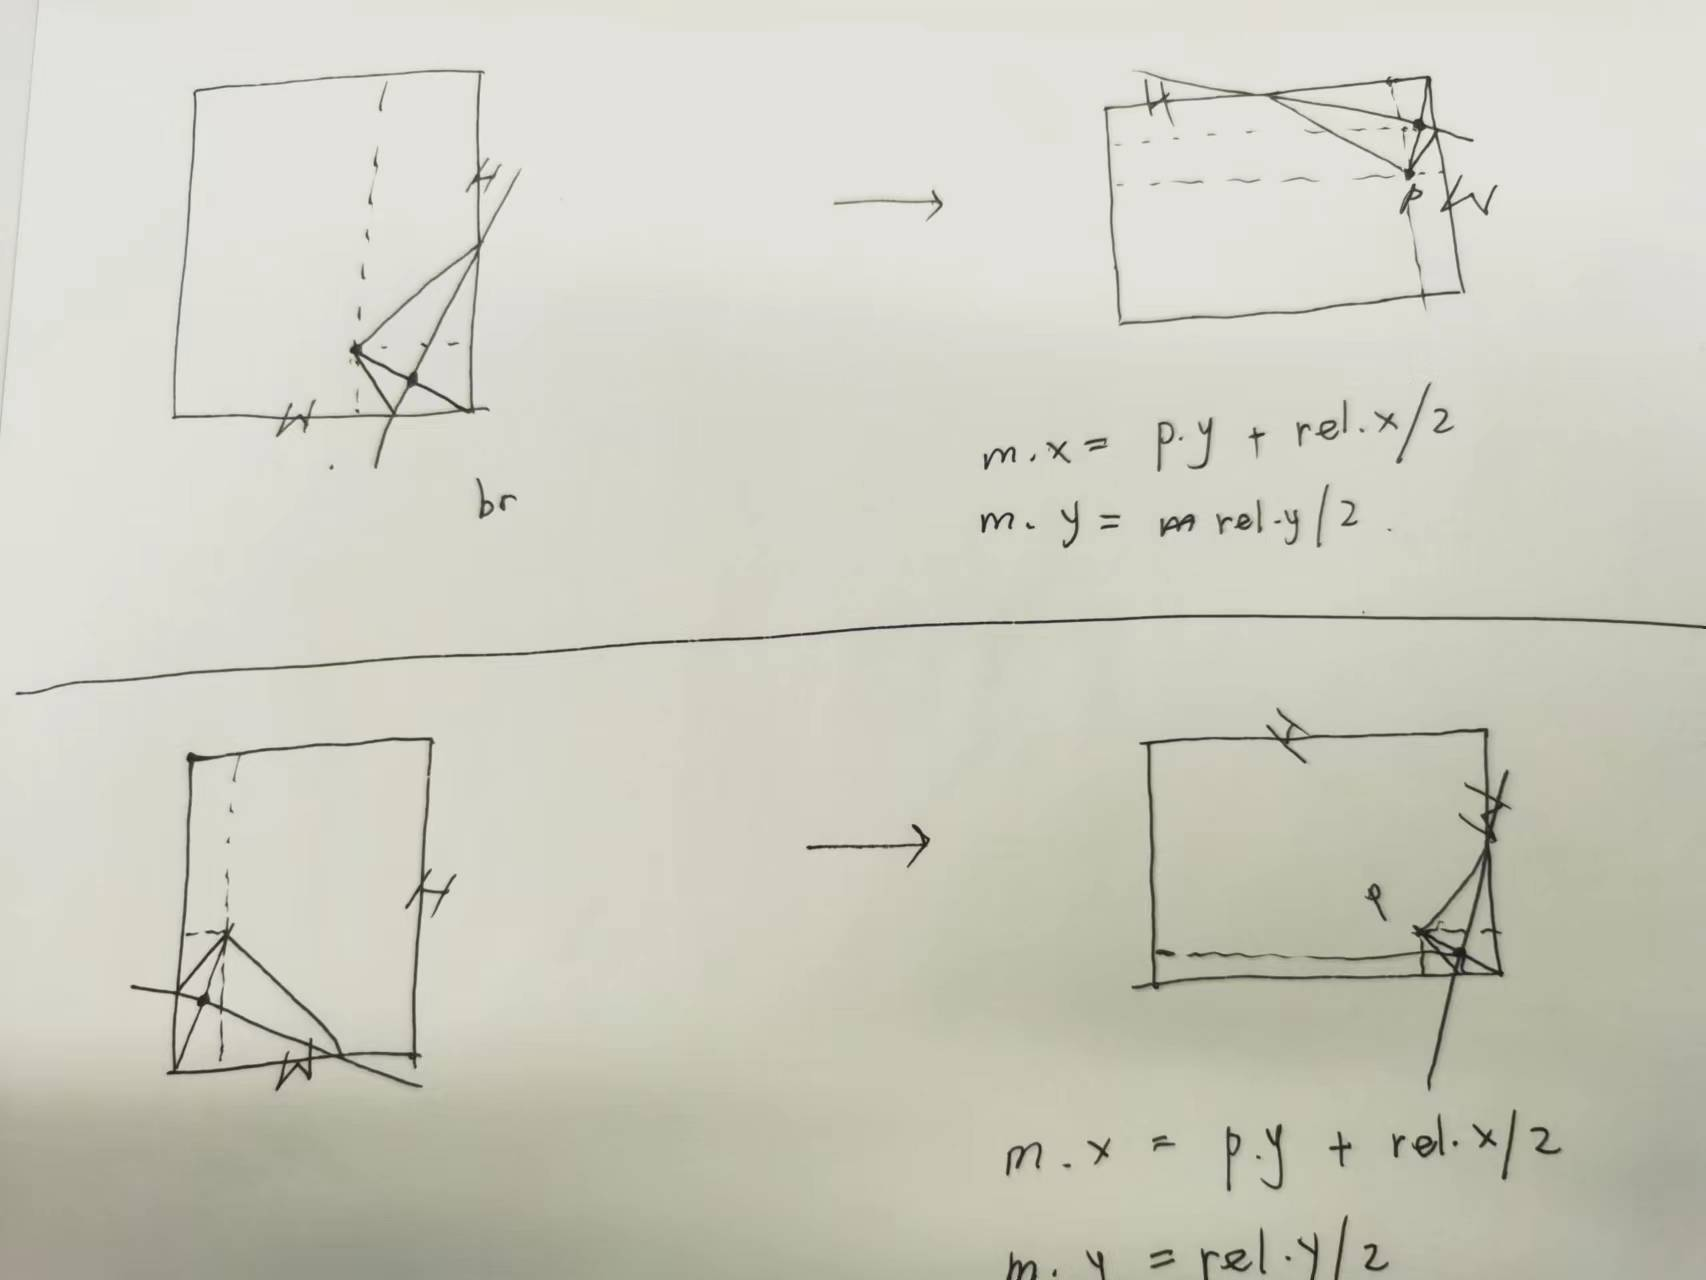 H
W
br
H
P
W
m.x = p.y + rel.x/2
m.y = rel.y/2.
H
W
H
P
m.x = p.y + rel.x/2
m.y = rel.y/2